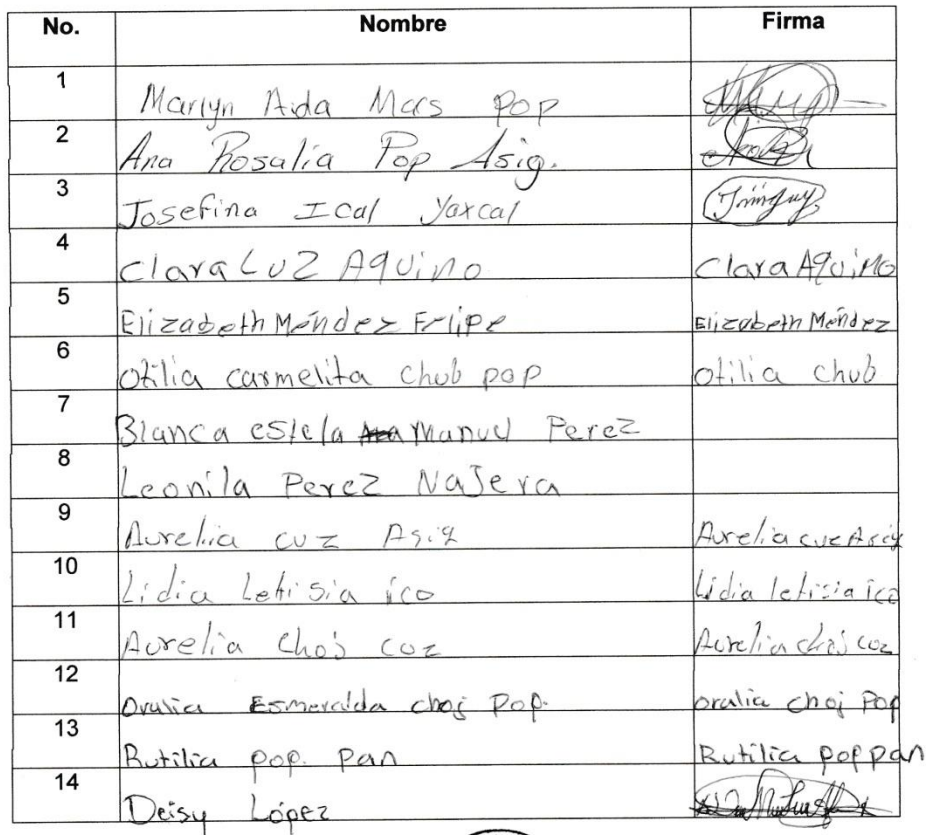 No. Nombre Firma
1
Marlyn Aida Maas Pop
2
Ana Rosalia Pop Asig.
3
Josefina Ical Yaxcal
4
Clara LUZ AQUINO Clara AQUINO
5
Elizabeth Méndez Felipe Elizabeth Méndez
6
Otilia carmelita Chub pop Otilia Chub
7
Blanca estela Manuel Perez
8
Leonila Perez NaJera
9
Aurelia cuz Asig Aurelia cuz Asig
10
Lidia Letisia ico Lidia letisia ico
11
Aurelia Choj coz Aurelia choj coz
12
Oralia Esmeralda choj Pop. oralia choj Pop
13
Rutilia pop. pan Rutilia pop pan
14
Deisy López